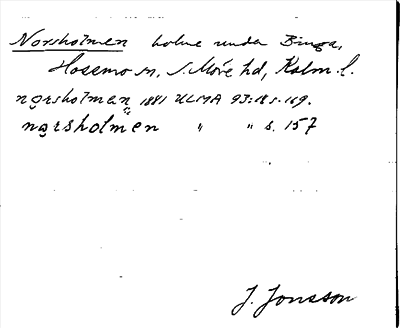 Norsholmen holme under Binga,
Hossmo sn, S. Möre hd, Kalm. l.
nọrsholmen 1881 ULMA 93:18 s. 169.
nọrsholmen " " s. 157
J. Jonsson